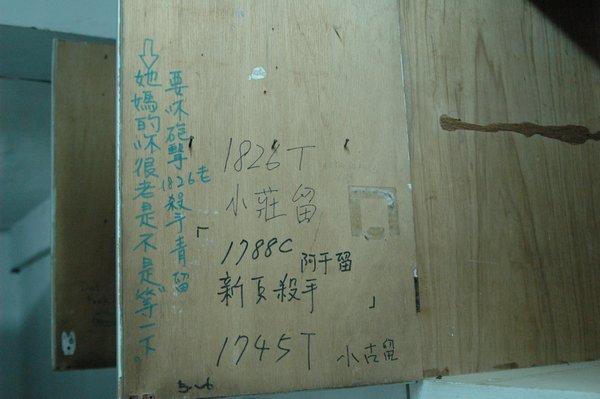 她媽的你很老是不是等一下。
要你砲擊1826老
殺手青留
1826T
小莊留
「
1788C 阿千留
新頁殺手
」
1745T 小古留